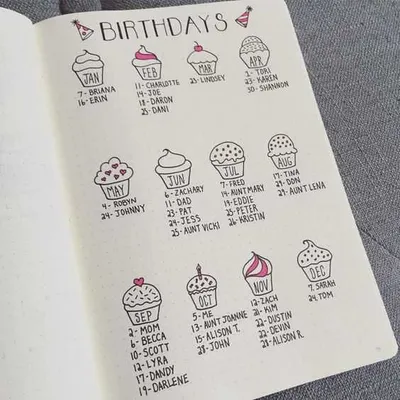 BIRTHDAYS
JAN
7- BRIANA
16- ERIN
FEB
11- CHARLOTTE
14- JOE
18- DARON
25- DANI
MAR
23- LINDSEY
APR
2- TORI
23- KAREN
30- SHANNON
MAY
4- ROBYN
24- JOHNNY
JUN
6- ZACHARY
11- DAD
23- PAT
24- JESS
25- AUNT VICKI
JUL
7- FRED
14- AUNT MARY
19- EDDIE
25- PETER
26- KRISTIN
AUG
17- TINA
29- DON
29- AUNT LENA
SEP
2- MOM
6- BECCA
10- SCOTT
12- LYRA
17- DANDY
19- DARLENE
OCT
5- ME
13- AUNT JOANNE
15- ALISON T.
28- JOHN
NOV
12- ZACH
21- KIM
22- DUSTIN
22- DEVIN
28- ALISON R
DEC
7- SARAH
24- TOM